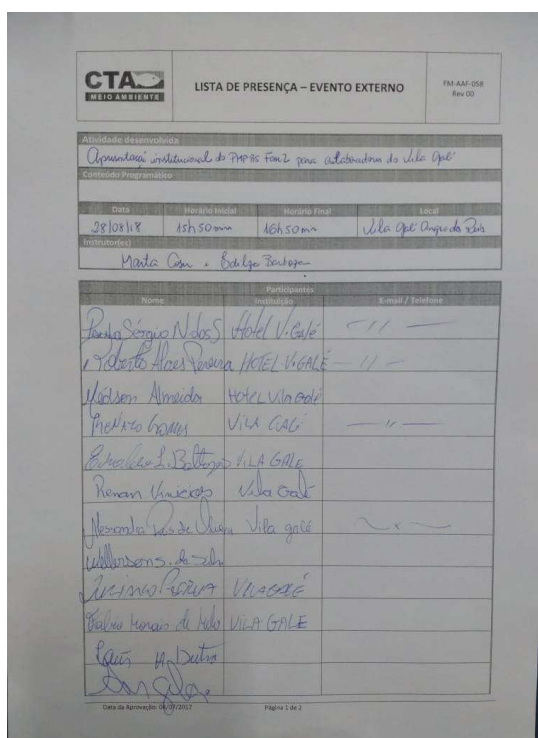 CTA
MEIO AMBIENTE
LISTA DE PRESENÇA – EVENTO EXTERNO
FM-AAF-058
Rev 00
Atividade desenvolvida
Apresentação institucional do para colaboradores do Vila Galé
Conteúdo Programático
Data Horário Inicial Horário Final Local
28/08/18 15h50mn 16h50mn Vila Galé Angra dos Reis
Instrutor(es)
Marta e Barbosa
Participantes
Nome Instituição E-mail / Telefone
Sérgio N dos S Hotel V. Galé — 11 —
Roberto Alves Pereira HOTEL V. GALÉ — 11 —
Almeida HOTEL Vila Galé
RENATO GOMES VILA GALÉ — 11 —
VILA GALE
Renan Vinicios Vila Galé
Alessandra de Oliveira Vila galé — x —
da Silva
VILA GALÉ
Fábio Morais de Melo VILA GALE
Dutra
Data da Aprovação: 04/07/2017 Página 1 de 2